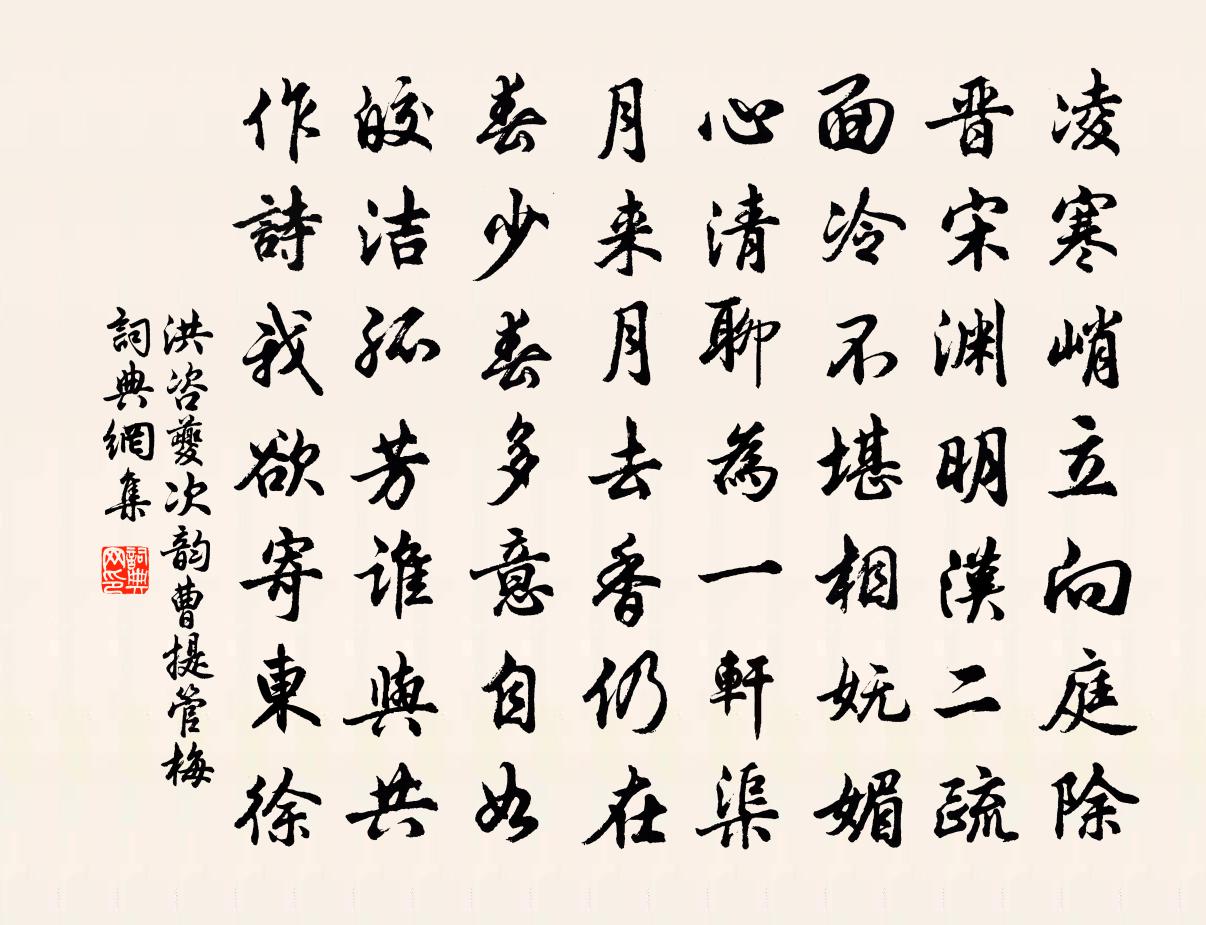 凌寒峭立向庭除
晋宋渊明漢二疏
面冷不堪相妩媚
心清聊為一軒渠
月来月去香仍在
春少春多意自如
皎洁孤芳谁與共
作詩我欲寄東徐
洪咨夔次韵曹提管梅
詞典網集
詞典网印